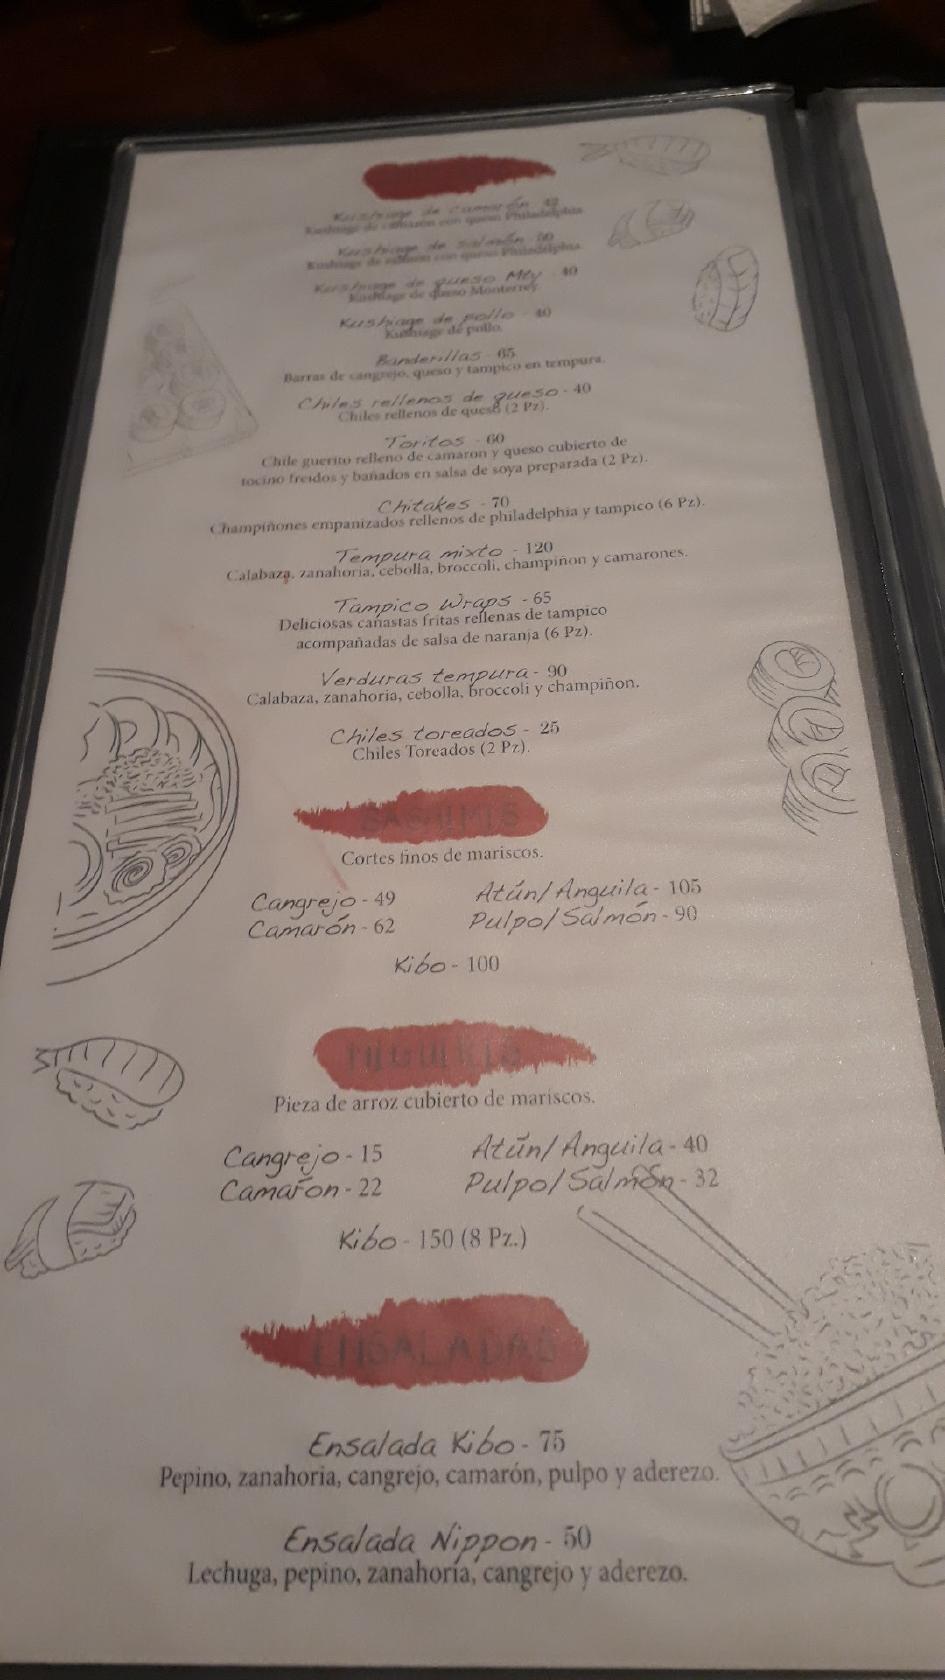 Kushiage de camarón
Kushiage de camarón con queso Philadelphia
Kushiage de salmón
Kushiage de salmon con queso Philadelphia
Kushiage de queso Mty - 40
Kushiage de queso Monterrey.
Kushiage de pollo - 40
Kushiage de pollo.
Banderillas - 65
Barras de cangrejo, queso y tampico en tempura.
Chiles rellenos de queso - 40
Chiles rellenos de queso (2 Pz).
Toritos - 60
Chile guerito relleno de camaron y queso cubierto de
tocino freidos y bañados en salsa de soya preparada (2 Pz).
Chitakes - 70
Champiñones empanizados rellenos de philadelphia y tampico (6 Pz).
Tempura mixto - 120
Calabaza, zanahoria, cebolla, broccoli, champiñon y camarones.
Tampico Wraps - 65
Deliciosas canastas fritas rellenas de tampico
acompañadas de salsa de naranja (6 Pz).
Verduras tempura - 90
Calabaza, zanahoria, cebolla, broccoli y champiñon.
Chiles toreados - 25
Chiles Toreados (2 Pz).
SASHIMIS
Cortes finos de mariscos.
Cangrejo - 49 Atún/Anguila - 105
Camarón - 62 Pulpo/Salmón - 90
Kibo - 100
Pieza de arroz cubierto de mariscos.
Cangrejo - 15 Atún/Anguila - 40
Camarón - 22 Pulpo/Salmón - 32
Kibo - 150 (8 Pz.)
ENSALADAS
Ensalada Kibo - 75
Pepino, zanahoria, cangrejo, camarón, pulpo y aderezo.
Ensalada Nippon - 50
Lechuga, pepino, zanahoria, cangrejo y aderezo.